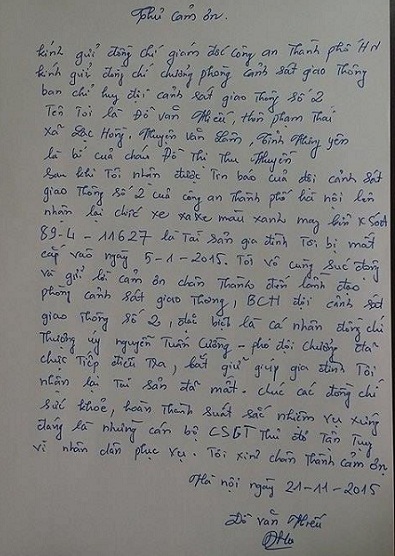 Thư cảm ơn.
kính gửi đồng chí giám đốc công an thành phố HN
kính gửi đồng chí trưởng phòng cảnh sát giao thông
ban chỉ huy đội cảnh sát giao thông số 2
Tên tôi là Đỗ văn Nhiếu, thôn phạm thai
xã Lạc Hồng, Huyện Văn Lâm, Tỉnh Hưng yên
là bố của cháu Đỗ Thị Thu Huyền
sau khi Tôi nhận được Tin báo của đội cảnh sát
giao Thông số 2 của công an thành phố hà nội lên
nhận lại chiếc xe màu xanh mang biển
89-4-11627 là Tài sản gia đình Tôi bị mất
cắp vào ngày 5-1-2015. Tôi vô cùng xúc động
và gửi lời cảm ơn chân Thành đến lãnh đạo
phòng cảnh sát giao Thông, BCH đội cảnh sát
giao Thông số 2, đặc biệt là cá nhân đồng chí
Thượng uý nguyễn Tuấn Cường - phó đội trưởng đã
trực Tiếp điều Tra, bắt giữ giúp gia đình Tôi
nhận lại Tài sản đã mất. chúc các đồng chí
sức khoẻ, hoàn Thành suất sắc nhiệm vụ xứng
đáng là những cán bộ CSGT Thủ đô Tận Tụy
vì nhân dân phục vụ. Tôi xin chân Thành cảm ơn
Hà nội ngày 21-11-2015
Đỗ văn Nhiếu